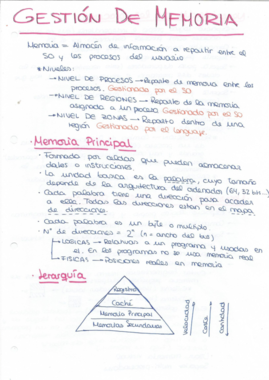 GESTIÓN DE MEMORIA
Memoria = Almacén de información a repartir entre el
SO y los procesos del usuario
* Niveles:
→ NIVEL DE PROCESOS → Reparto de memoria entre los
procesos. Gestionada por el SO
→ NIVEL DE REGIONES → Reparto de la memoria
asignada a un proceso Gestionado por el SO
→ NIVEL DE ZONAS → Reparto dentro de una
región Gestionado por el lenguaje.
· Memoria Principal
- Formada por celdas que pueden almacenar
datos o instrucciones.
- La unidad básica es la palabra, cuyo tamaño
depende de la arquitectura del ordenador (64, 32 bits...)
- Cada palabra tiene una dirección para acceder
a ella. Todas las direcciones están en el mapa
de direcciones.
- Cada palabra es un byte o múltiplo
- Nº de direcciones = 2ⁿ (n = ancho del bus)
→ LÓGICAS → Relativas a un programa y usadas en
el. En los programas no se usa memoria real
→ FÍSICAS → Posiciones reales en memoria
· Jerarquía
Registro
Caché
Memoria Principal
Memorias Secundarias
velocidad
Coste
cantidad